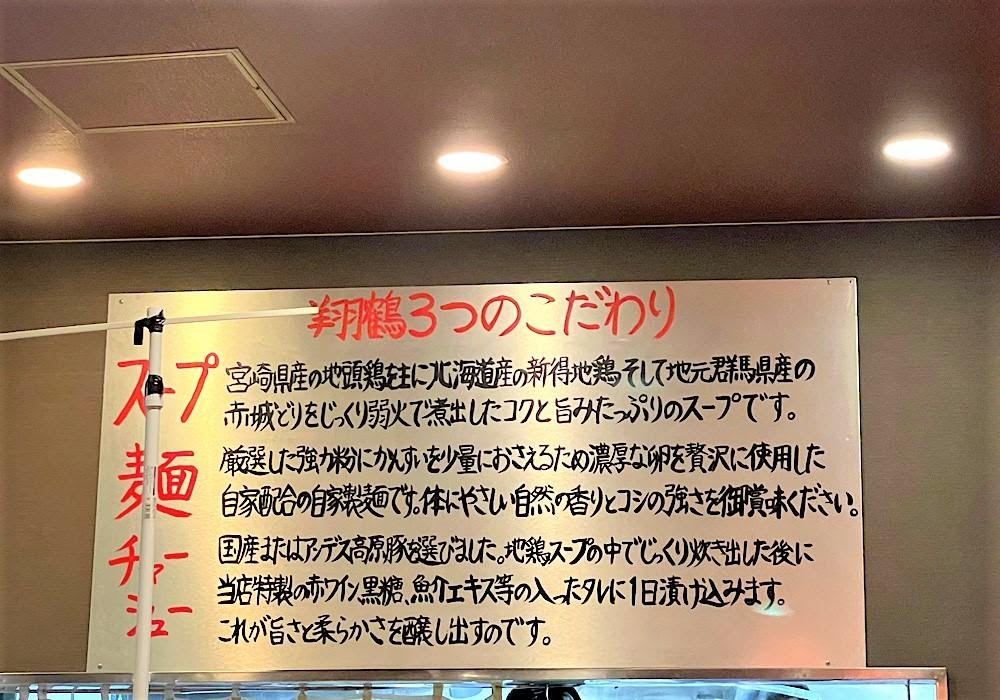 翔鶴3つのこだわり
スープ
宮崎県産の地頭鶏を主に北海道産の新得地鶏そして地元群馬県産の
赤城どりをじっくり弱火で煮出したコクと旨みたっぷりのスープです。
麺
厳選した強力粉にかんすいを少量におさえるため濃厚な卵を贅沢に使用した
自家配合の自家製麺です。体にやさしい自然の香りとコシの強さを御賞味ください。
チャー
シュー
国産またはアンデス高原豚を選びました。地鶏スープの中でじっくり炊き出した後に
当店特製の赤ワイン、黒糖、魚介エキス等の入ったタレに1日漬け込みます。
これが旨さと柔らかさを醸し出すのです。